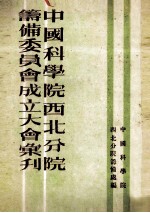 中國科學院西北分院
籌備委員會成立大會彙刊
中國科學院
西北分院籌備處編